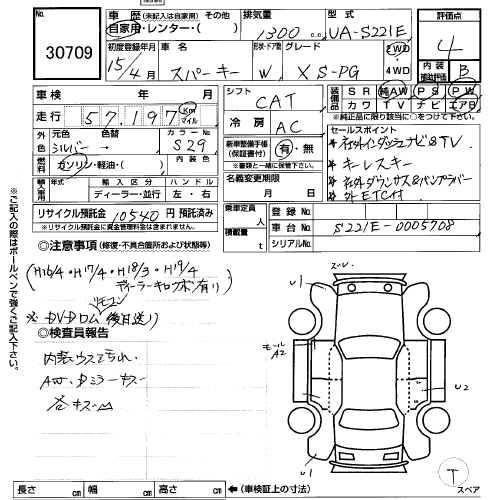 No.
30709
車歴(未記入は自家用) その他
自家用・レンター・( )
排気量
1300 cc
型式
UA-S221E
評価点
4
初度登録年月
15/4月
車名
スパーキー
形状・ドア数
W
グレード
X S-PG
2WD
4WD
内装
補助評価
B
車検 年 月
走行 57,197 Km
マイル
シフト
CAT
装備品
SR 純AW PS PW
カワ TV ナビ エアB
※純正品に限り該当に○をして下さい。
外装
元色
シルバー
色替
→
カラーNo
S29
燃料
ガソリン・軽油・( )
内装色
冷房
AC
セールスポイント
*社外インダッシュナビ&TV
*キーレスキー
*社外ダウンサス&バンプラバー
*外ETC付
新車整備手帳
(保証書付)
有・無
※書類と一緒に保管して下さい。
輸入車用
年式
輸入区分
ディーラー・並行
ハンドル
左・右
名義変更期限
月 日
リサイクル預託金 10540 円 預託済み
※リサイクル預託金に資金管理料金は含まれません。
乗車定員 人
積載量 t
登録No
車台No S221E-0005708
シリアルNo
◎注意事項(修復・不具合箇所および状態等)
(H16/4・H17/4・H18/3・H19/4
ディーラーキロクボ有り)
リモコン
※DVDロム後日送り)
◎検査員報告
内装ウスヨゴレ
AW・Dミラーキズ
各キズ
※ご記入の際はボールペンで強くご記入下さい。
U1
モール
A2
U2
U1
T
スペア
長さ cm 幅 cm 高さ cm ←(車検証上の寸法)